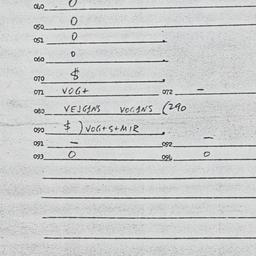 040 0
050 0
051 0
060 0
070 $
071 VOG+ 072 -
080 VEJGANS VOGANS (290
090 $ ) VOG+S+MIR
091 - 092 -
093 0 094 0